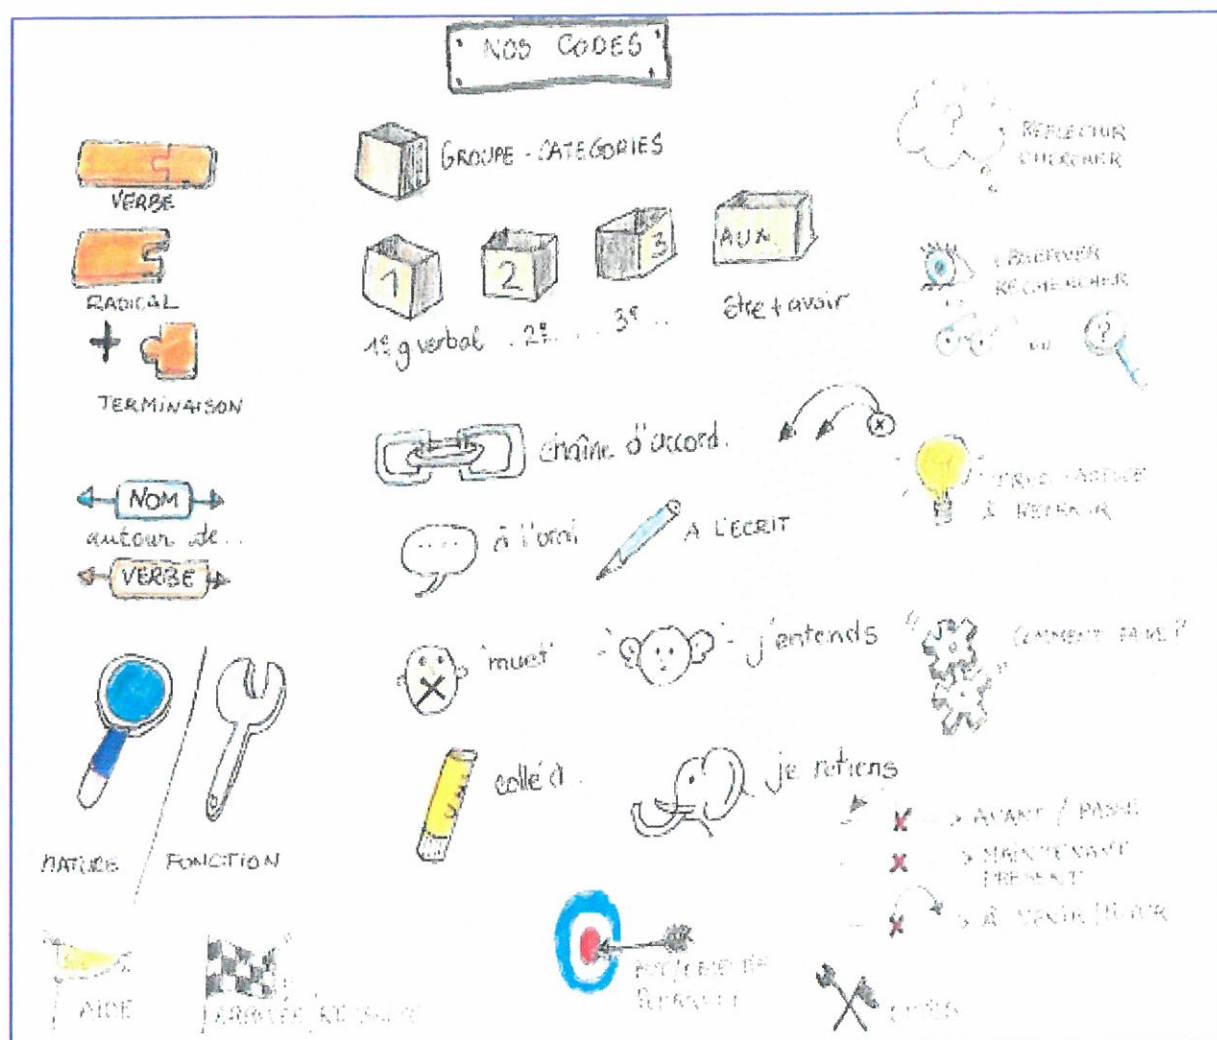 NOS CODES
VERBE
RADICAL
+
TERMINAISON
NOM
autour de..
VERBE
NATURE
FONCTION
AIDE
GROUPE - CATEGORIES
1
2
3
AUX
1e g verbal
.. 2e ...
. 3e ..
être + avoir
chaîne d'accord.
x
....
à l'oral
A L'ECRIT
"muet"
j'entends
collé à ..
je retiens
?
REFLECHIR
CHERCHER
OBSERVER
RECHERCHER
ou
?
À RETENIR
COMMENT FAIRE?
x → AVANT / PASSÉ
x → MAINTENANT
PRESENT
x → À VENIR /